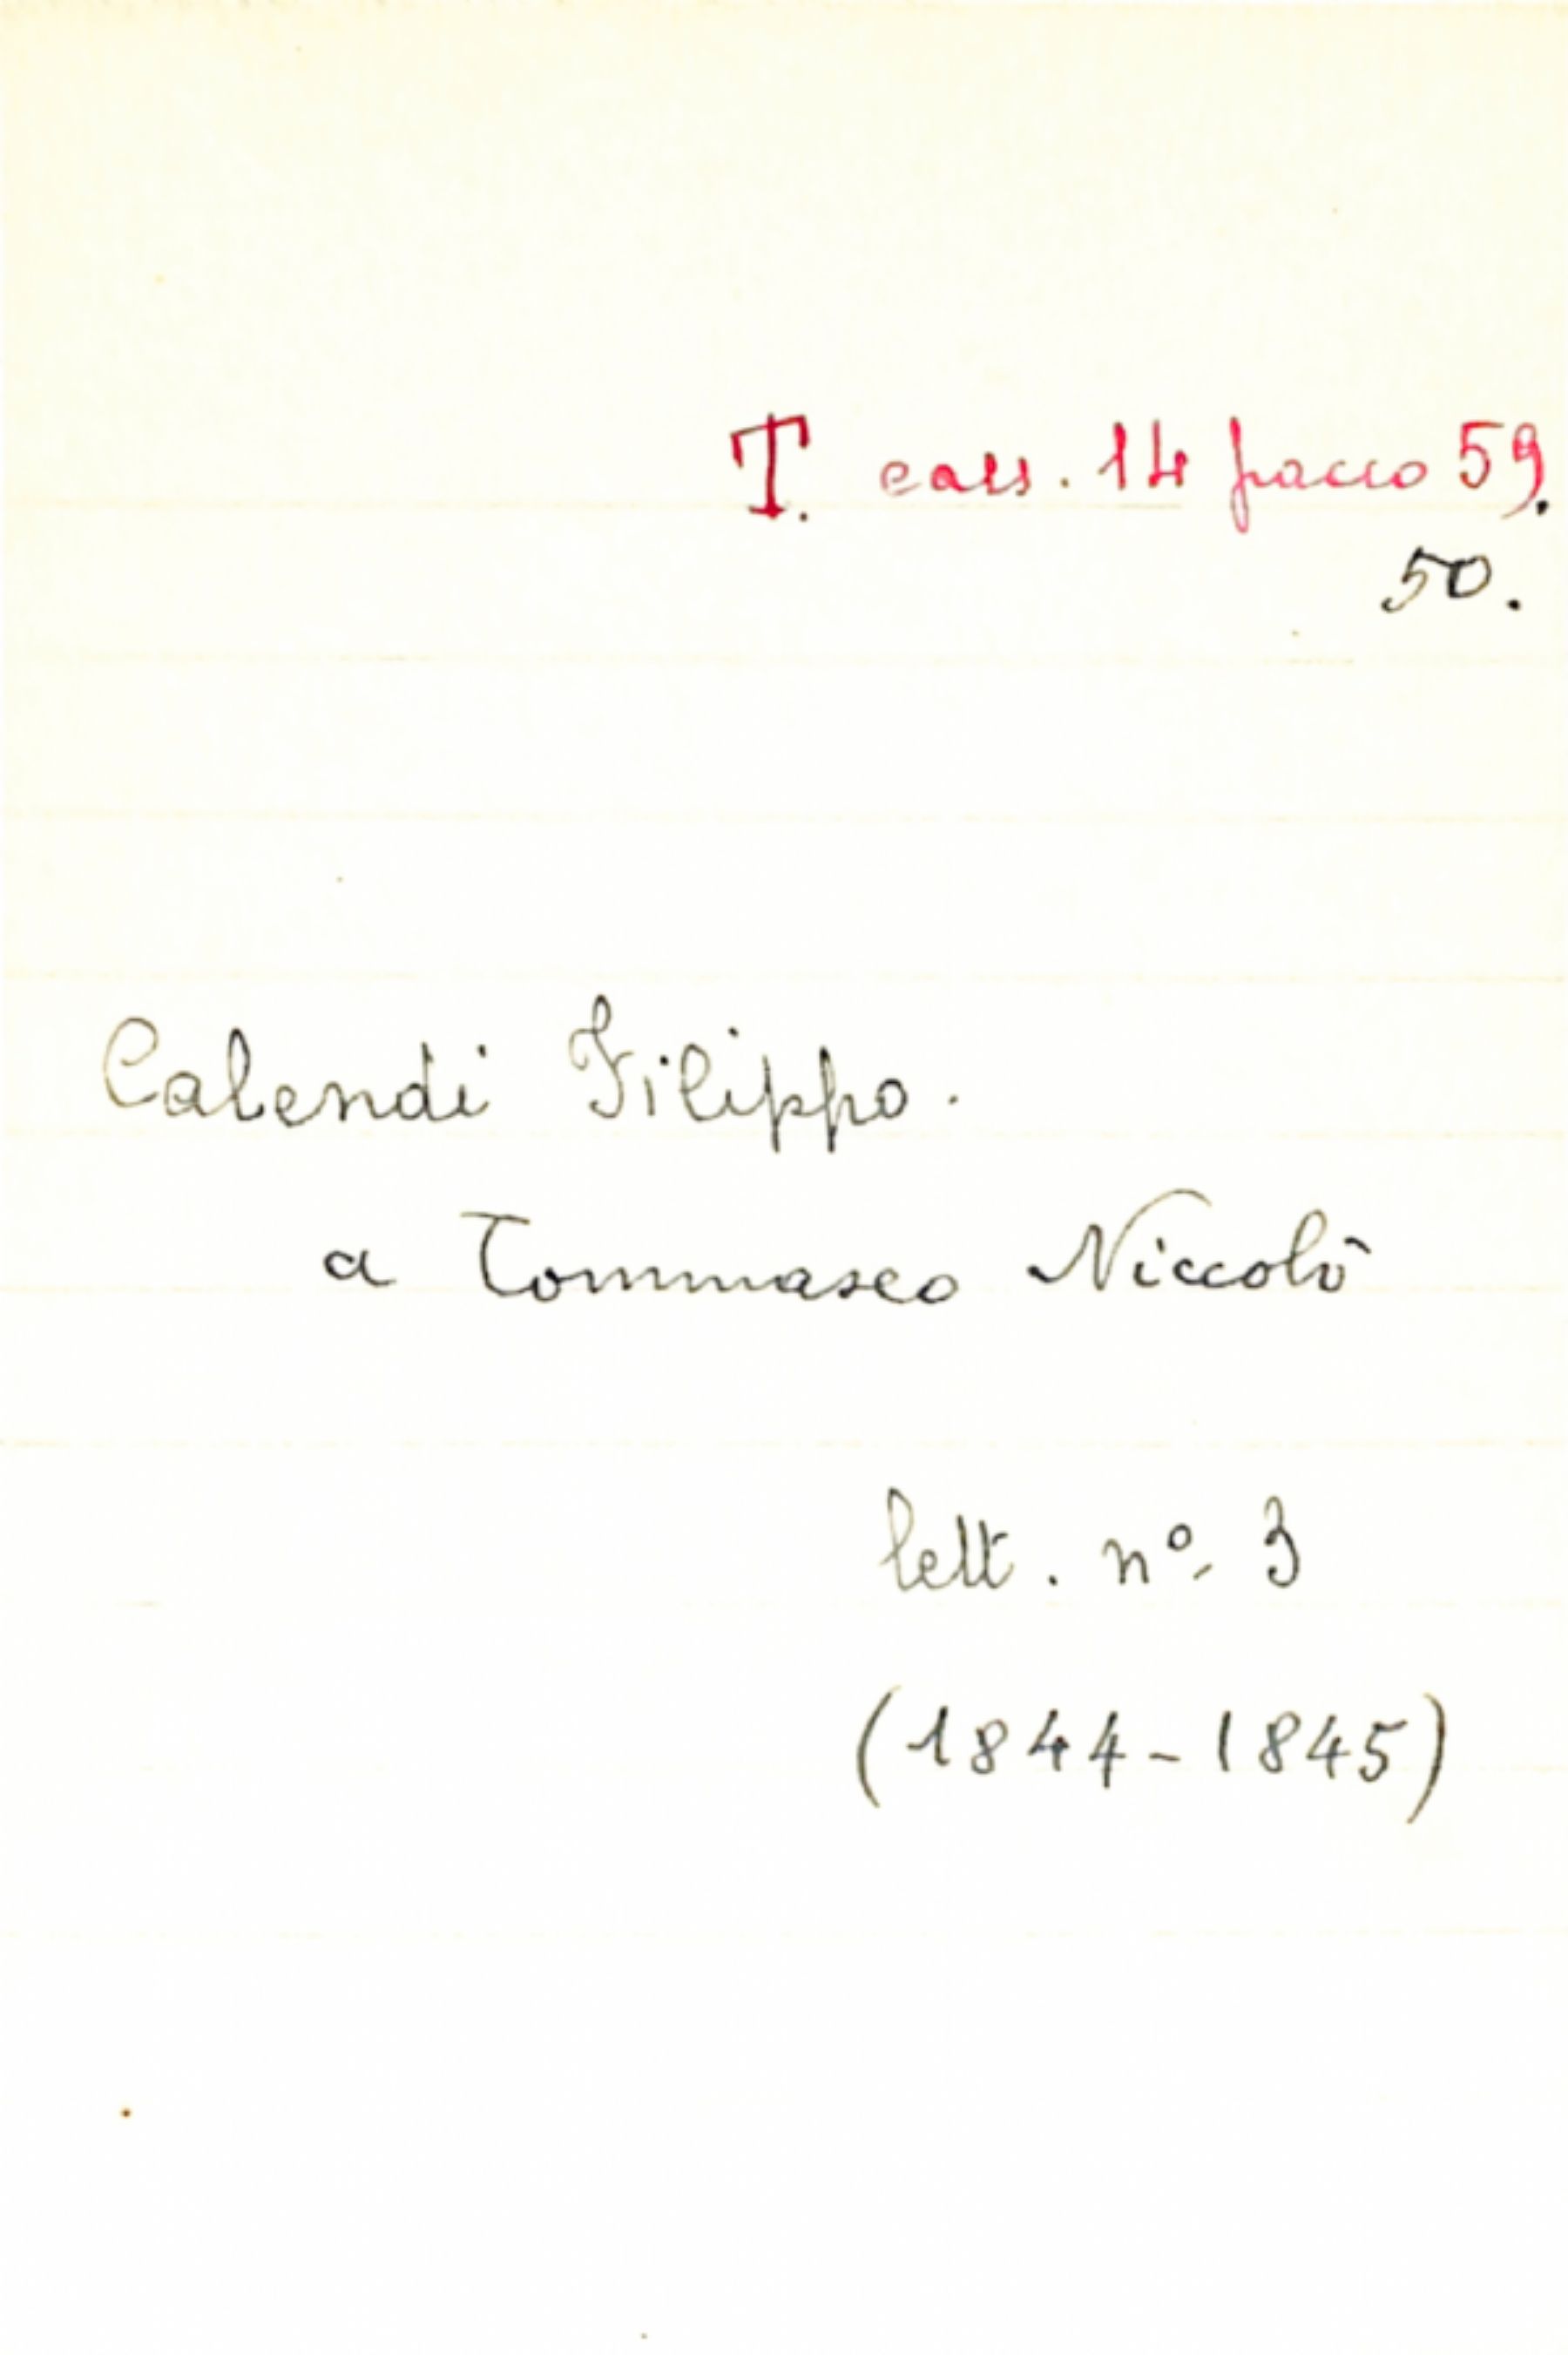 T. cass. 14 pacco 59.
50.
Calendi Filippo.
a Tommaseo Niccolò
lett. nº. 3
(1844-1845)